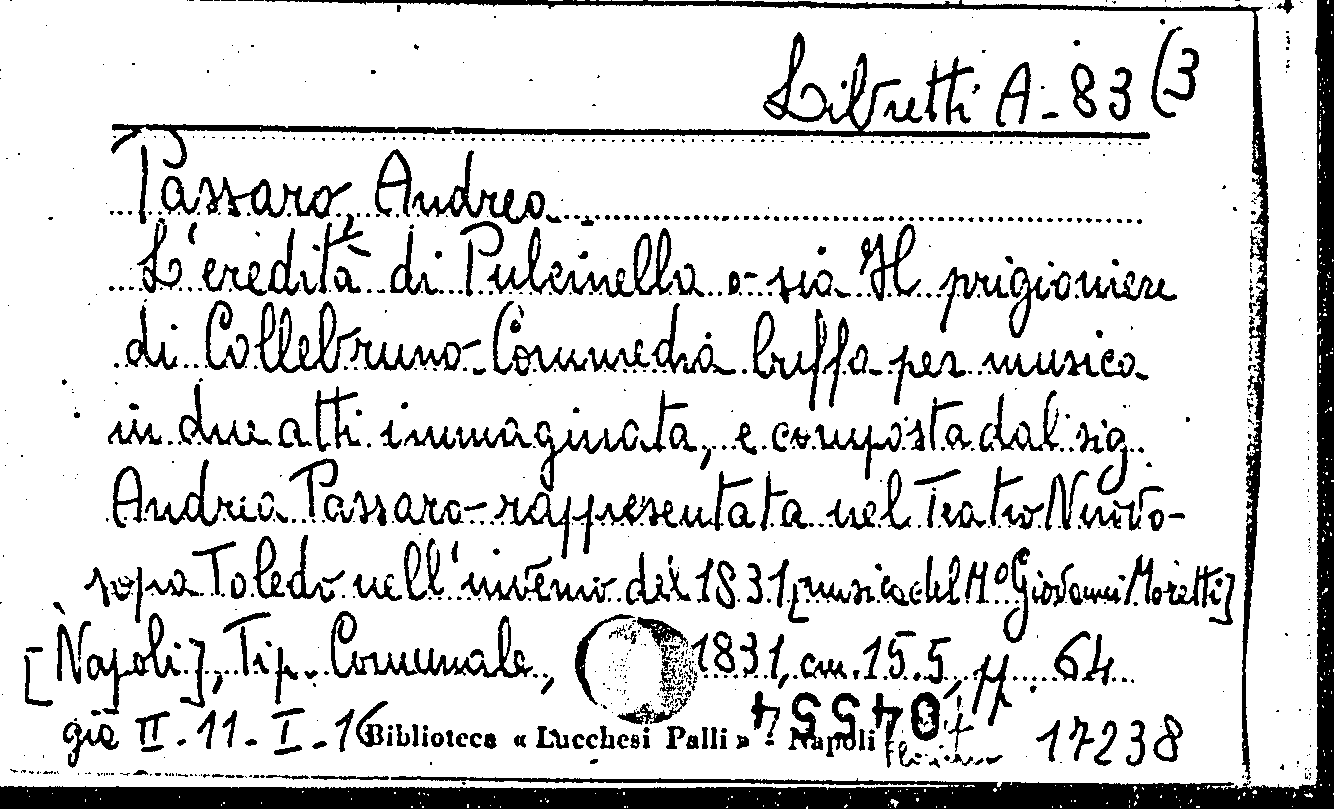 Libretti A-83(3
Passaro, Andrea
L'eredità di Pulcinella o-sia Il prigioniere
di Collebruno-Commedia buffa per musica
in due atti immaginata, e composta dal sig.
Andrea Passaro-rappresentata nel Teatro Nuovo-
sopra Toledo nell'inverno del 1831[musica del M° Giovanni Moretti]
[Napoli], Tip. Comunale, 1831, cm. 15.5, pp. 64
già II-11-I-16 Biblioteca « Lucchesi Palli » - Napoli 17238
04554